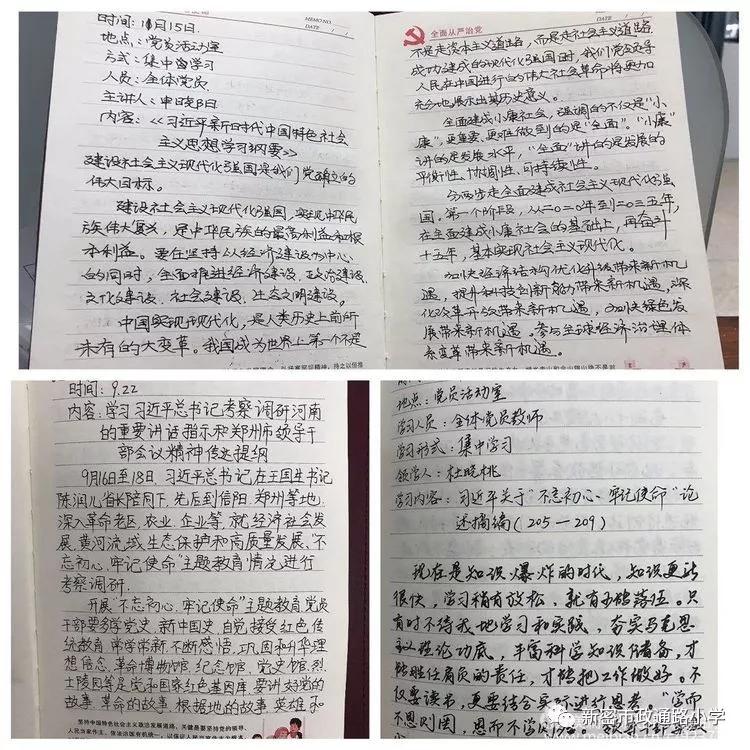 MEMO NO.
DATE
时间:10月15日.
地点:党员活动室
方式:集中学习
人员:全体党员
主讲人:申晓阳
内容:《习近平新时代中国特色社会
主义思想学习纲要》
建设社会主义现代化强国是我们党确立的
伟大目标。
建设社会主义现代化强国,实现中华民
族伟大复兴,是中华民族的最高利益和根
本利益。要在坚持以经济建设为中心
的同时,全面推进经济建设、政治建设、
文化建设、社会建设、生态文明建设。
中国实现现代化,是人类历史上前所
未有的大变革。我国成为世界上第一个不是
全面从严治党
MEMO NO.
DATE
不是走资本主义道路,而是走社会主义道路
成功建成的现代化强国时,我们党领导
人民在中国进行的伟大社会革命将更加
充分地展示出其历史意义。
全面建成小康社会,强调的不仅是“小
康”,更重要、更难做到的是“全面”。“小康”
讲的是发展水平,“全面”讲的是发展的
平衡性、协调性、可持续性。
分两步走全面建成社会主义现代化强
国,第一个阶段,从二〇二〇年到二〇三五年,
在全面建成小康社会的基础上,再奋斗
十五年,基本实现社会主义现代化。
加快经济结构优化升级带来新机
遇,提升科技创新能力带来新机遇,深
化改革开放带来新机遇,加快绿色发
展带来新机遇。参与全球经济治理体
系变革带来新机遇。
时间:9.22
内容:学习习近平总书记考察调研河南
的重要讲话指示和郑州市领导干
部会议精神传达提纲
9月16日至18日,习近平总书记在王国生书记
陈润儿省长陪同下,先后到信阳、郑州等地,
深入革命老区、农业、企业等,就经济社会发
展、黄河流域生态保护和高质量发展、“不
忘初心、牢记使命”主题教育情况进行
考察调研.
开展“不忘初心、牢记使命”主题教育,党员
干部要多学党史、新中国史,自觉接受红色传
统教育,常学常新,不断感悟,巩固和升华理
想信念.革命博物馆、纪念馆、党史馆、烈
士陵园等是党和国家红色基因库.要讲好党的
故事、革命的故事、根据地的故事、英雄和
坚持中国特色社会主义政治发展道路,关键是要坚持党的领导、
人民当家作主、依法治国有机统一,以保证人民当家作主为根本,
地点:党员活动室
学习人员:全体党员教师
学习形式:集中学习
领学人:杜晓桃
学习内容:习近平关于“不忘初心、牢记使命”论
述摘编(205—209)
现在是知识爆炸的时代,知识更新
很快,学习稍有放松,就有可能落伍。只
有时不待我地学习和实践,夯实马克思
主义理论功底,丰富科学知识储备,才
能胜任肩负的责任,才能把工作做好。不
仅要读书,更要结合实际进行思考。“学而
不思则罔,思而不学则殆。
新密市政通路小学